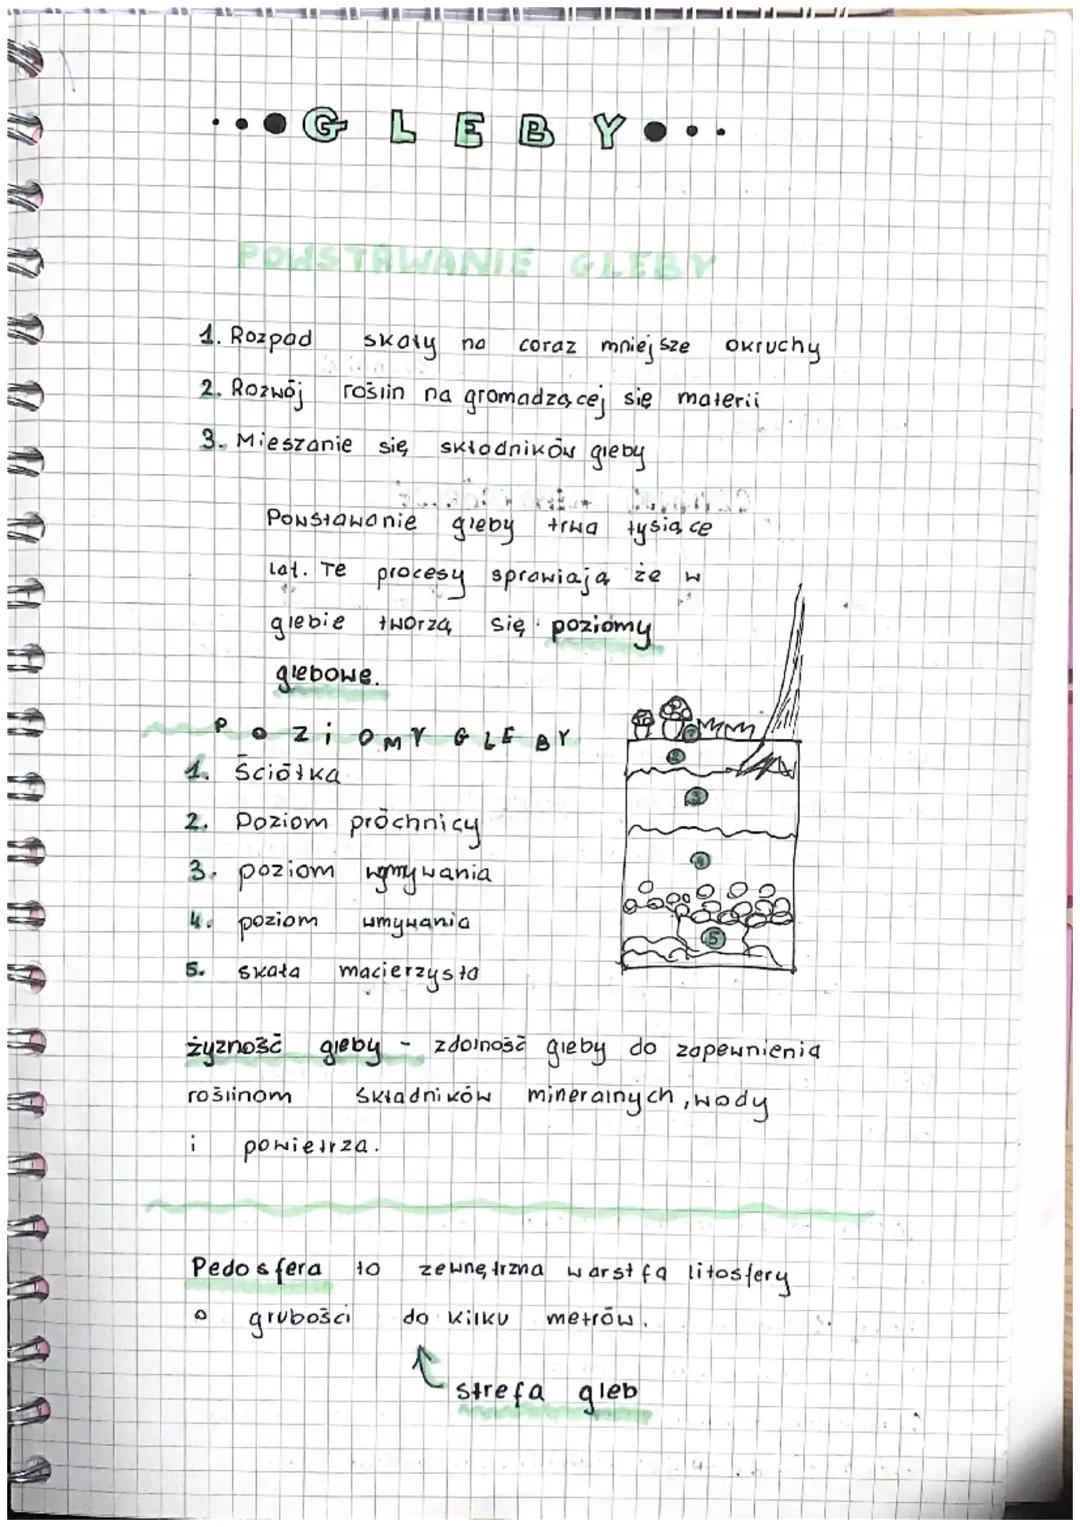 GLEBY
POWSTAWANIE GLEBY
1. Rozpad skały na coraz mniejsze okruchy
2. Rozwój roślin na gromadzącej się materii
3. Mieszanie się składników gleby
Powstawanie gleby trwa tysiące
lat. Te procesy sprawiają że w
glebie tworzą się poziomy
glebowe.
POZiOMY GLEBY
1. Ściółka
2. Poziom próchnicy
3. poziom wymywania
4. poziom wmywania
5. skała macierzysta
1
2
3
4
5
żyzność gleby - zdolność gleby do zapewnienia
roślinom składników mineralnych, wody
i powietrza.
Pedosfera to zewnętrzna warstfa litosfery
o grubości do kilku metrów.
strefa gleb